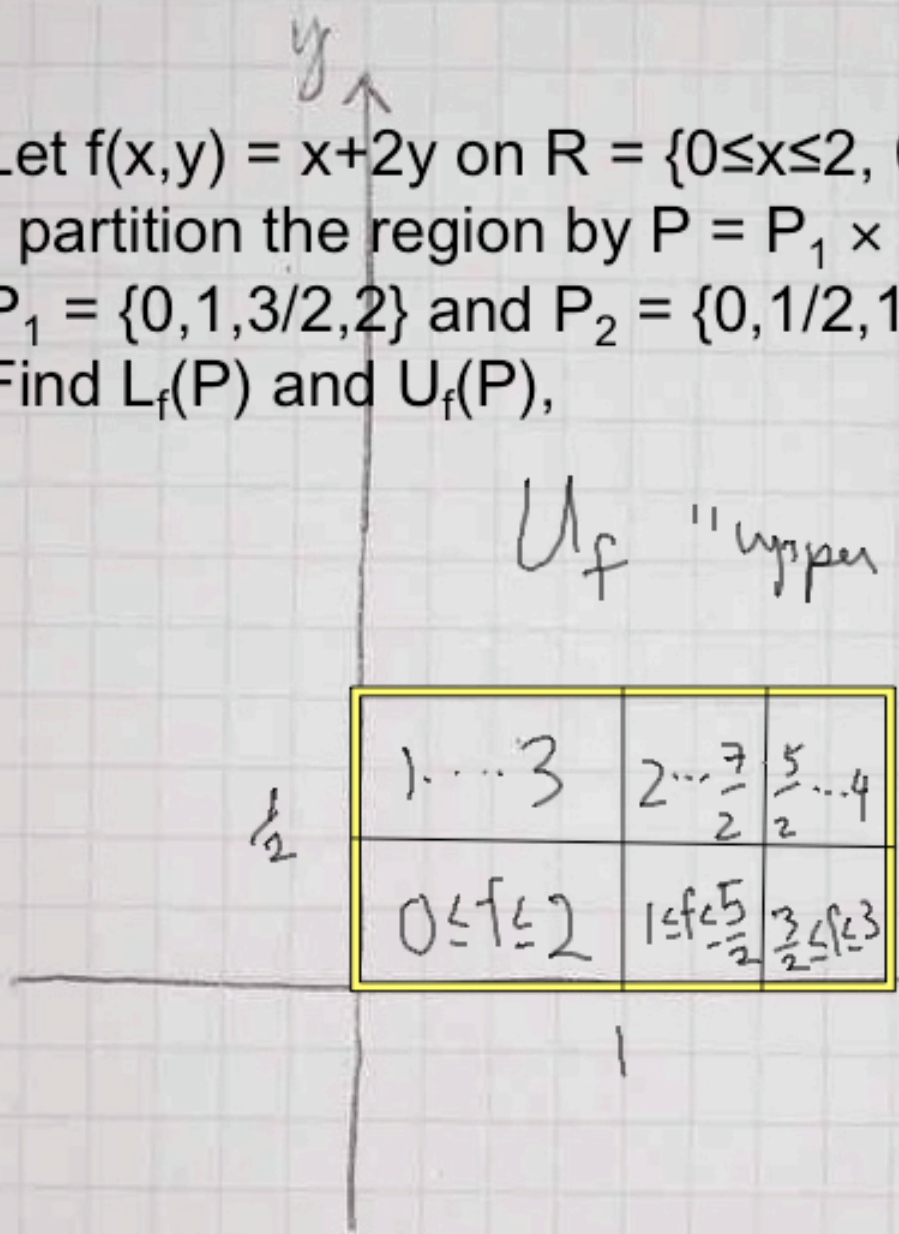 y
Let f(x,y) = x+2y on R = {0≤x≤2,
partition the region by P = P₁ ×
P₁ = {0,1,3/2,2} and P₂ = {0,1/2,1
Find Lf(P) and Uf(P),
Uf "upper
1....3 2...7/2 5/2...4
1/2
0≤f≤2 1≤f≤5/2 3/2≤f≤3
1